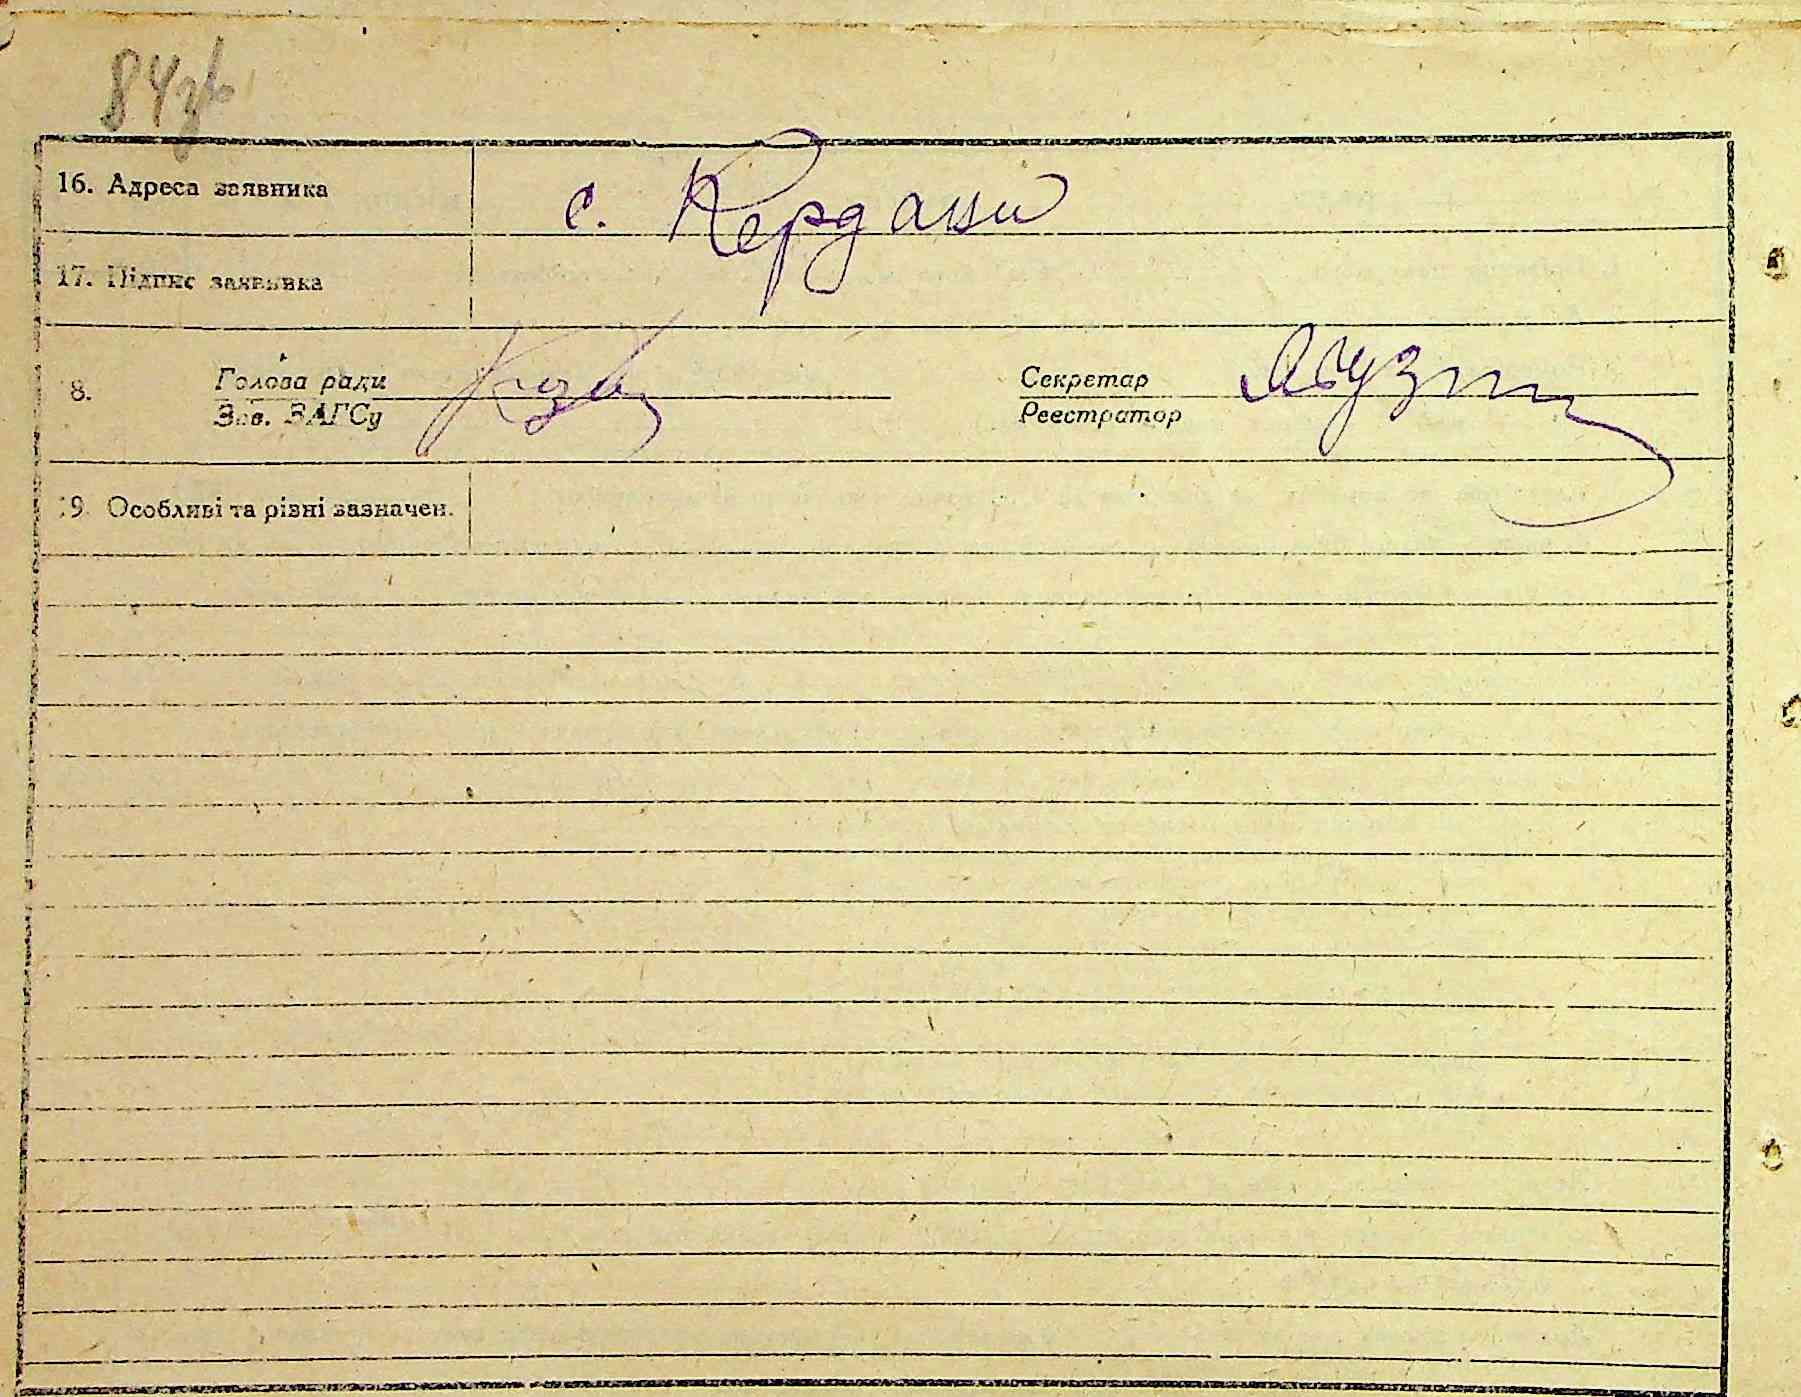 84зв
16. Адреса заявника с. Кердани
17. Підпис заявника
18. Голова ради Секретар
Зав. ЗАГСу Реєстратор
19. Особливі та різні зазначен.